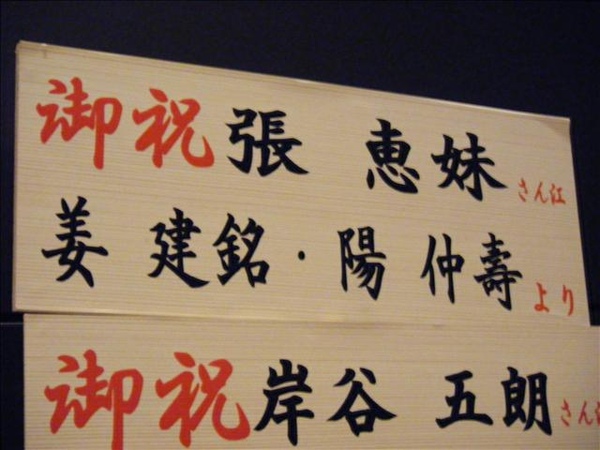 御祝 張 恵妹 さん江
姜 建銘・陽 仲壽 より
御祝 岸谷 五朗 さん江